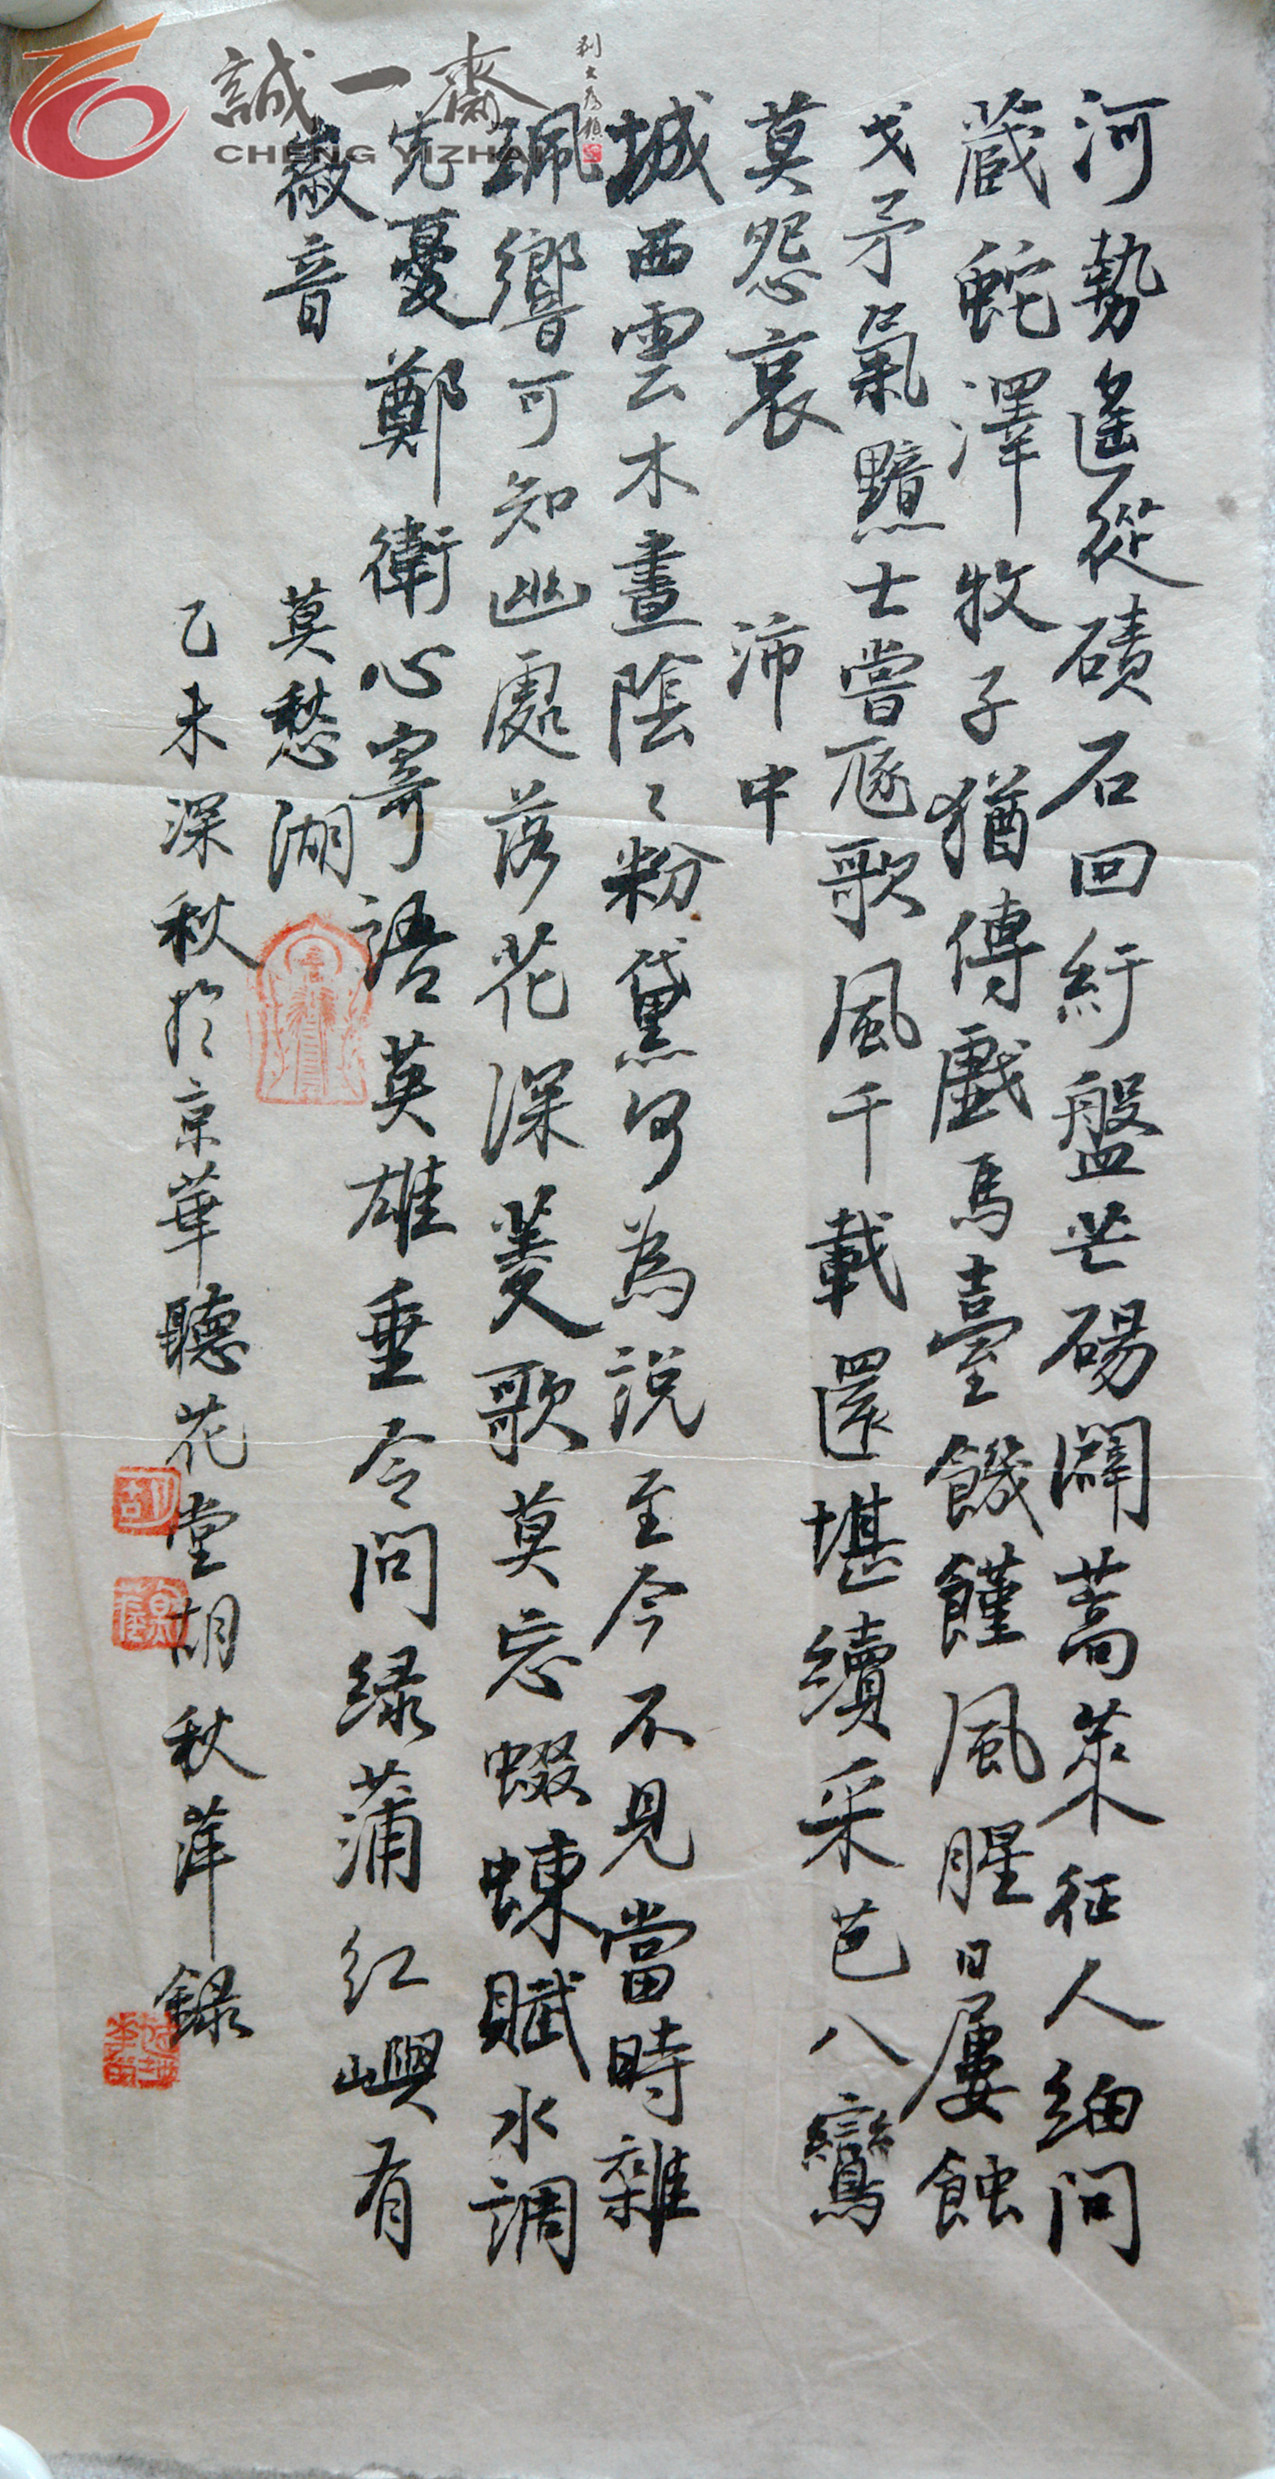 河勢遙從磧石回紆盤芒碭闢蒿萊征人細問
蔵蛇澤牧子猶傳戲馬臺饑饉風腥日屢蝕
戈矛氣黯士嘗豗歌風千載還堪續采芑八鸞
莫怨哀 沛中
城西雲木晝陰〻粉黛何為說至今不見當時雜
珮響可知幽處落花深菱歌莫忘蝃蝀賦水調
先憂鄭衛心寄語英雄垂令問绿蒲红嶼有
徽音 莫愁湖
乙未深秋於京華聽花堂胡秋萍録
誠一齋
CHENG YIZHAI